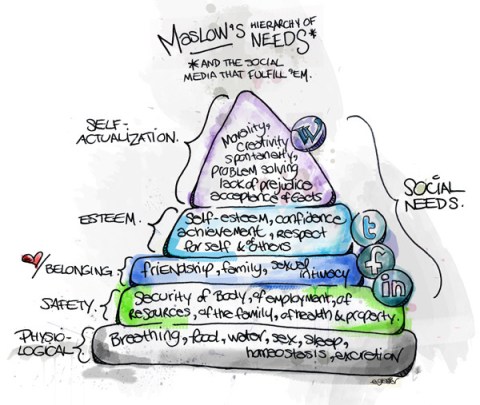 MASLOW'S HIERARCHY OF NEEDS*
*AND THE SOCIAL
MEDIA THAT FULFILL 'EM.
SELF-
ACTUALIZATION.
Morality,
creativity
spontaneity,
problem solving
lack of prejudice
acceptance of facts
W
SOCIAL
NEEDS.
ESTEEM.
Self-esteem, confidence
achievement, respect
for self & others
t
f
BELONGING
friendship, family, sexual
intimacy
in
SAFETY.
Security of Body, of employment, of
resources, of the family, of health & property.
PHYSIO-
LOGICAL
Breathing, food, water, sex, sleep,
homeostasis, excretion